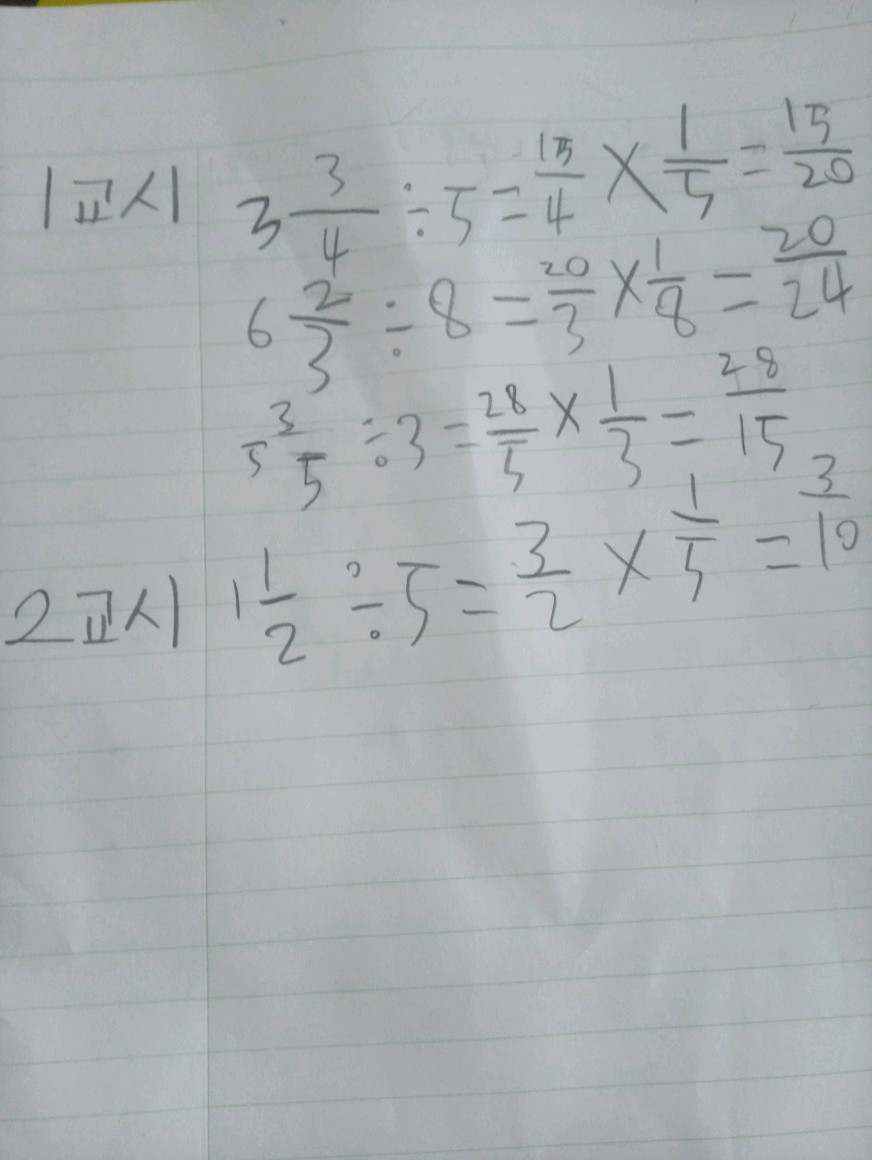 1교시 3 3/4 ÷ 5 = 15/4 × 1/5 = 15/20
6 2/3 ÷ 8 = 20/3 × 1/8 = 20/24
5 3/5 ÷ 3 = 28/5 × 1/3 = 28/15
2교시 1 1/2 ÷ 5 = 3/2 × 1/5 = 3/10